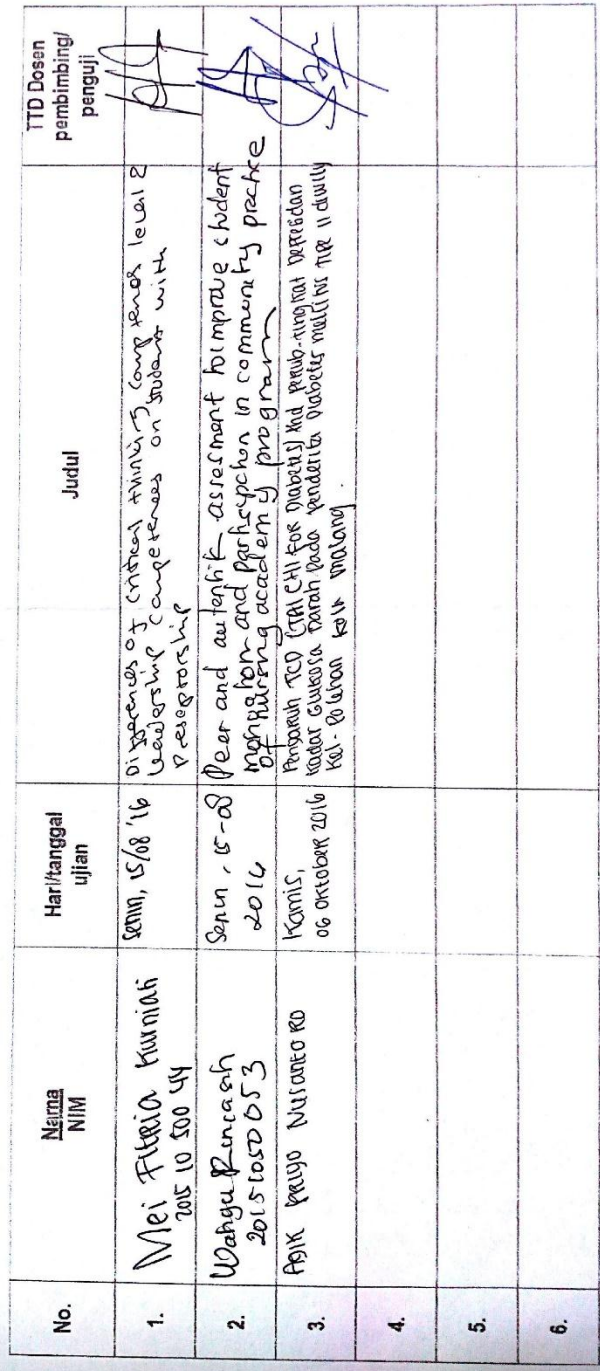 No.
Nama
NIM
Hari/tanggal
ujian
Judul
TTD Dosen
pembimbing/
penguji
1.
Mei Fitria Kurniati
2015 10 500 44
Senin, 15/08 '16
Differences of critical thinking competences level 2
leadership competences on students with
preseptorship
2.
Wahyu
20151050053
Senin, 15-08
2016
Peer and autentik assesment to improve student
and in community practice
of nursing academy program
3.
Agik Priyo Nusantoro
Kamis,
06 Oktober 2016
Pengaruh TCD (TAI CHI FOR Diabetes) thd perub. tingkat Depresi dan
kadar Glukosa Darah pada penderita Diabetes mellitus TIPE II diwily
Kel. Polehan kota malang.
4.
5.
6.